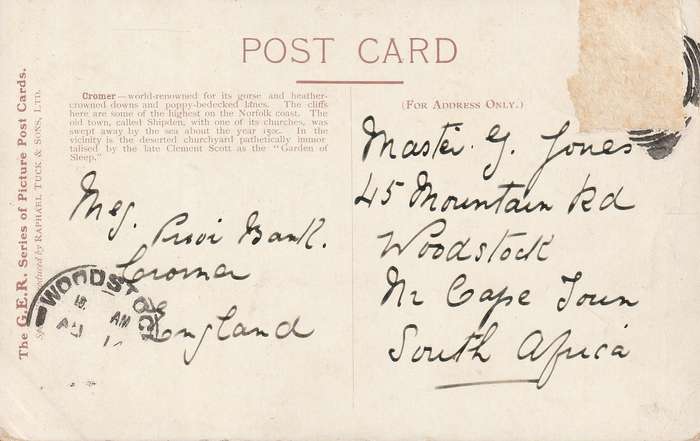 POST CARD
The G.E.R. Series of Picture Post Cards.
by RAPHAEL TUCK & SONS, LTD.
Cromer—world-renowned for its gorse and heather-
crowned downs and poppy-bedecked lanes. The cliffs
here are some of the highest on the Norfolk coast. The
old town, called Shipden, with one of its churches, was
swept away by the sea about the year 1500. In the
vicinity is the deserted churchyard pathetically immor
talised by the late Clement Scott as the "Garden of
Sleep."
(FOR ADDRESS ONLY.)
Meg.
Bank.
Cromer
England
Master. G. Jones
45 Mountain Rd
Woodstock
Nr Cape Town
South Africa
WOODSTOCK
AM
AU